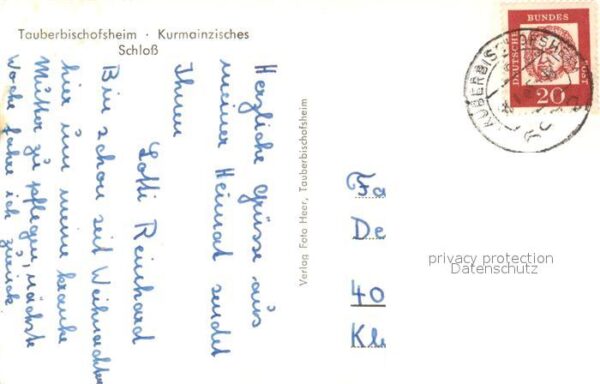 Tauberbischofsheim · Kurmainzisches
Schloß
Herzliche Grüsse aus
meiner Heimat sendet
Ihnen
Lotti Reinhard
Bin schon seit Weihnachten
hier um meine kranke
Mutter zu pflegen, nächste
Woche fahre ich zurück
Verlag Foto Heer, Tauberbischofsheim
DEUTSCHE
BUNDES
POST
20
TAUBERBISCHOFSHEIM
Fa
De
40
Kle
privacy protection
Datenschutz